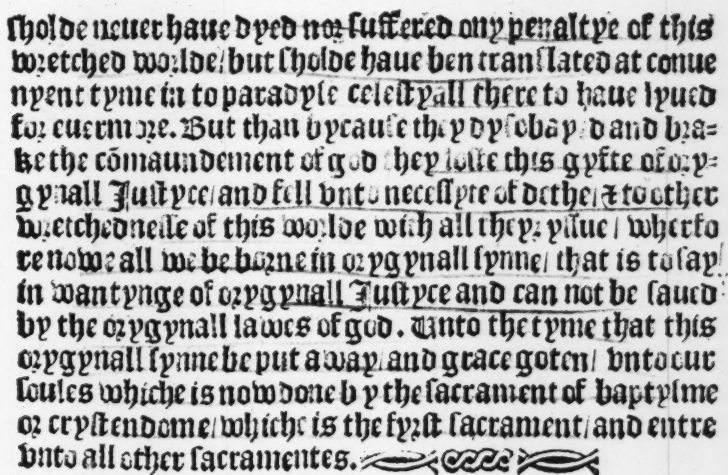 sholde neuer haue dyed nor suffered ony penaltye of this
wretched worlde/but sholde haue ben translated at conue
nyent tyme in to paradyse celestyall there to haue lyued
for euermore. But than bycause they dysobayed and bra=
ke the cōmaundement of god they loste this gyfte of ory=
gynall Justyce/and fell vnto necessyte of dethe/& to other
wretchednesse of this worlde with all theyr yssue/ wherfo
re nowe all we be borne in orygynall synne/ that is to say/
in wantynge of orygynall Justyce and can not be saued
by the orygynall lawes of god. Unto the tyme that this
orygynall synne be put away/and grace goten/ vnto our
soules whiche is now done by the sacrament of baptysme
or crystendome/whiche is the fyrst sacrament/and entre
vnto all other sacramentes.